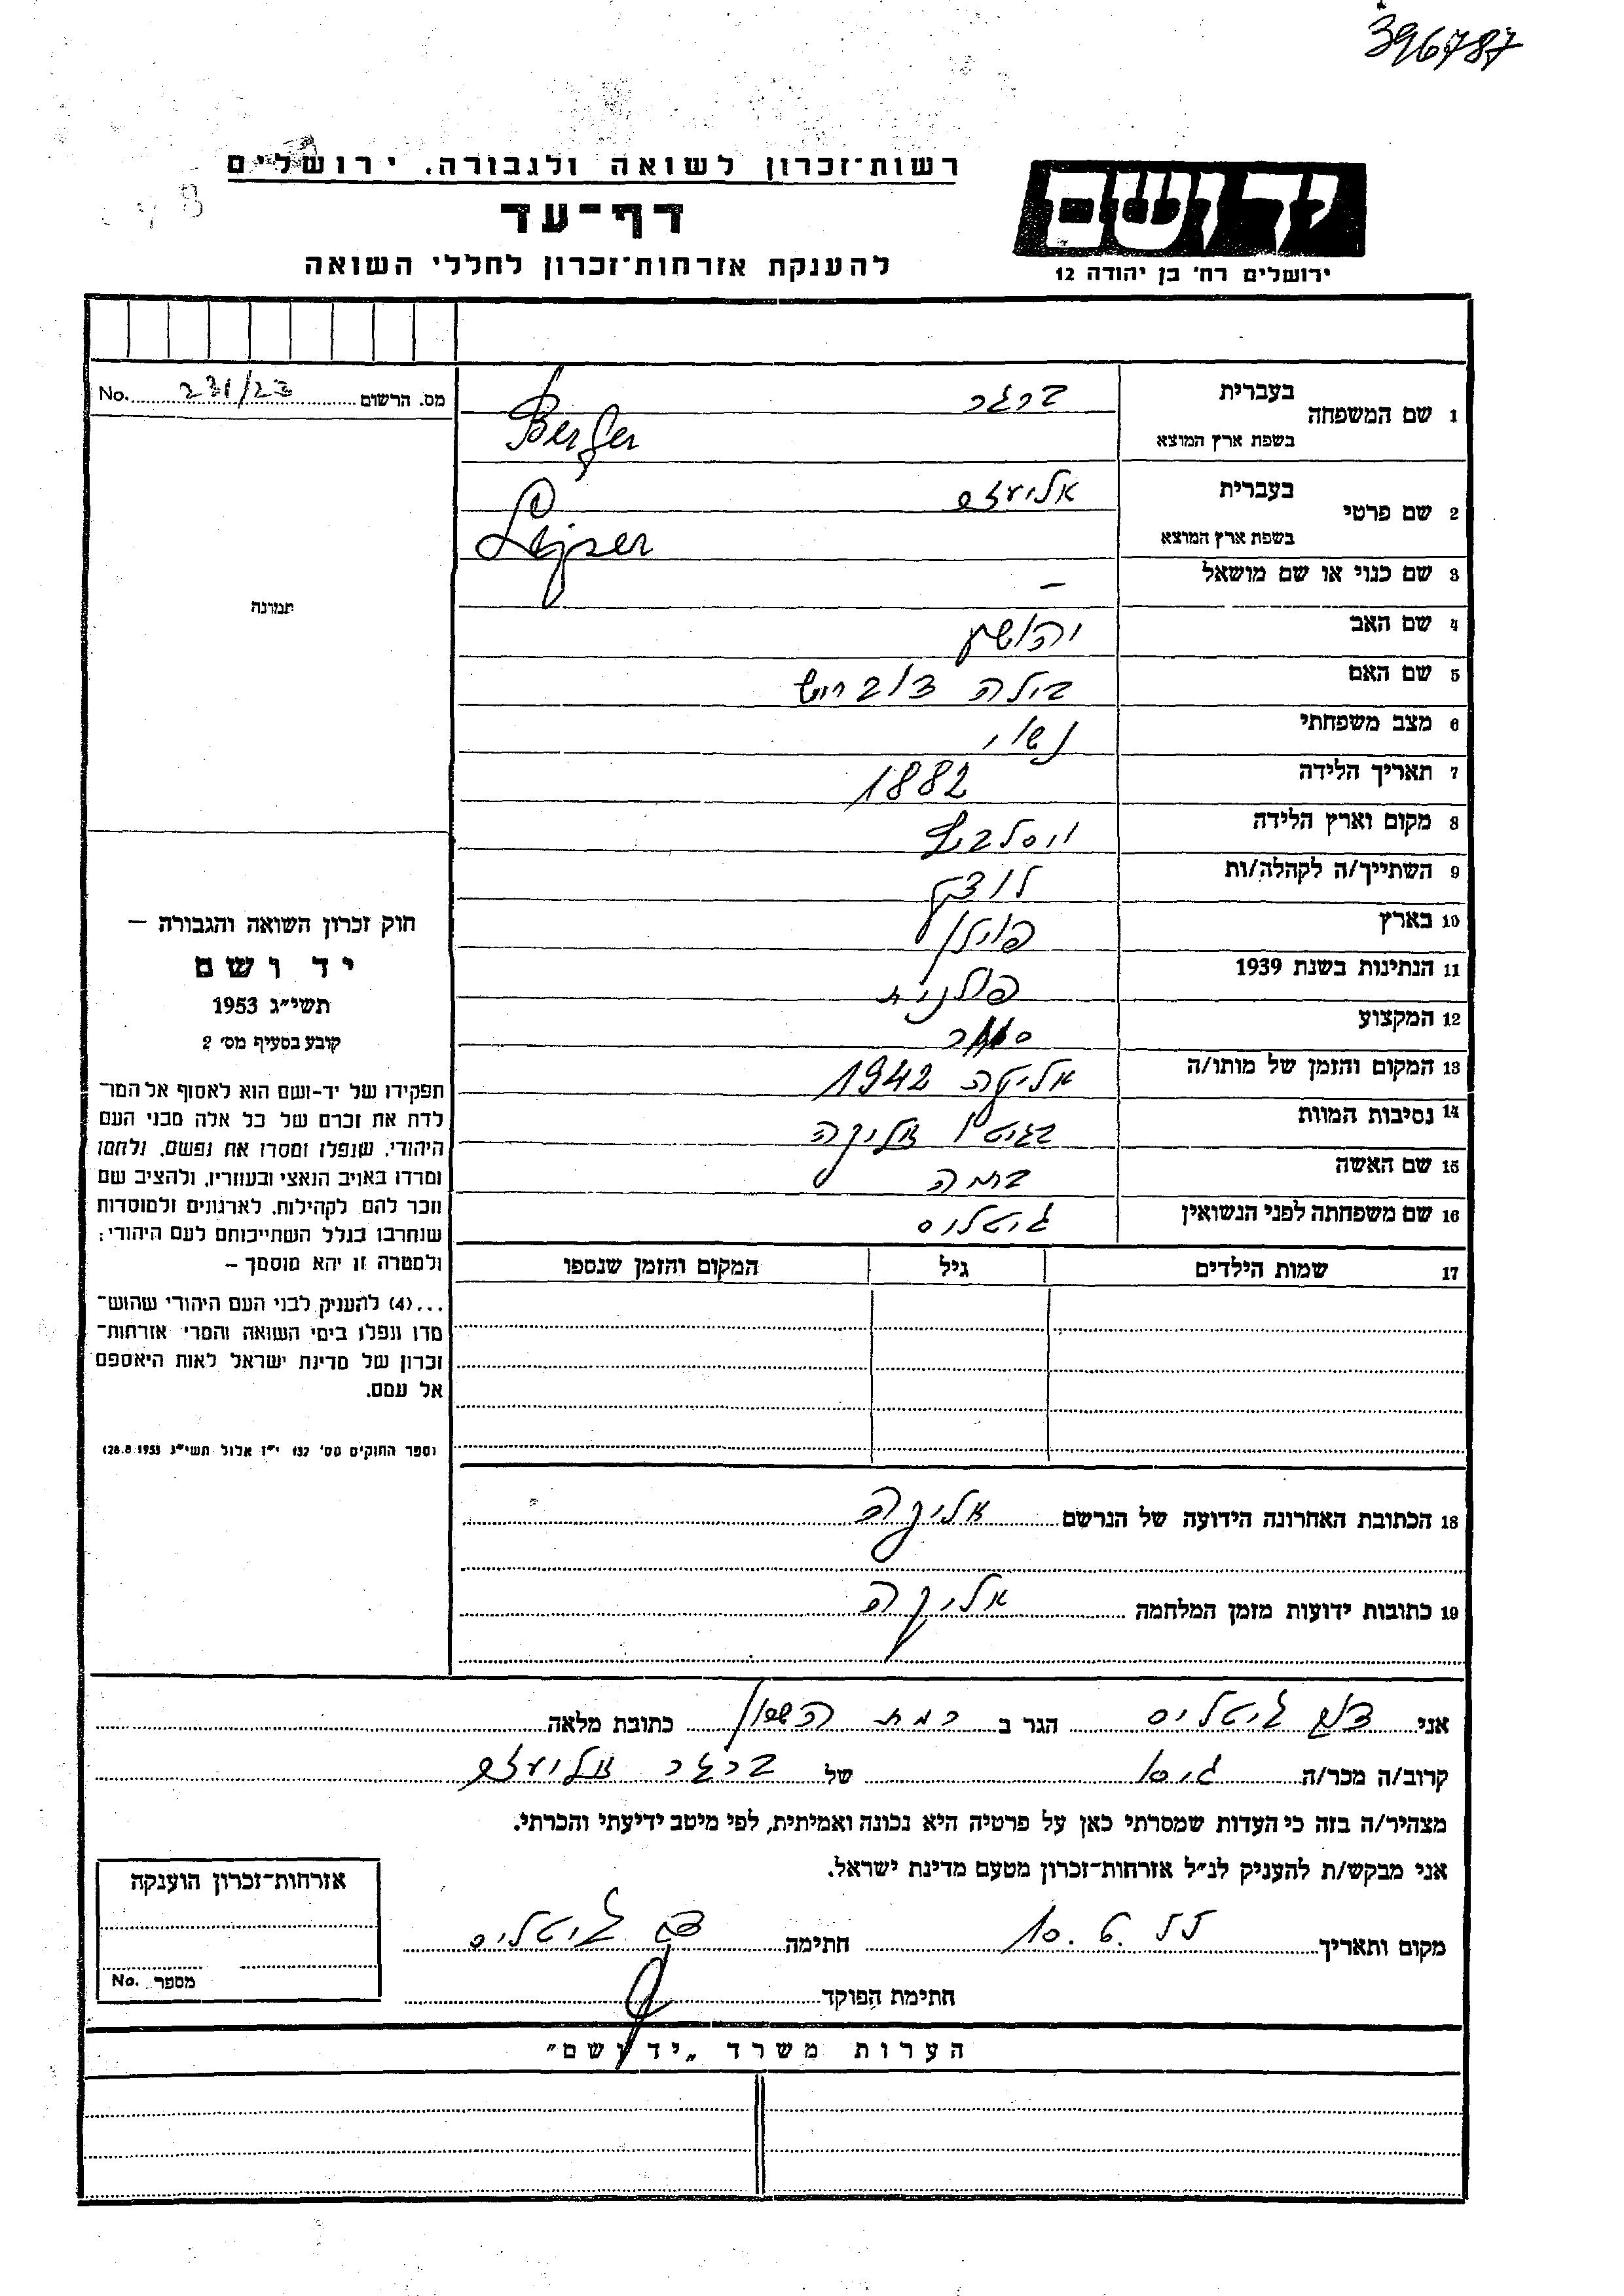 396787
רשות־זכרון לשואה ולגבורה, ירושלים
דף־עד
להענקת אזרחות־זכרון לחללי השואה
יד ושם
ירושלים רח' בן יהודה 12
מס. הרשום 231/23 No.
1 שם המשפחה
בעברית ברגר
בשפת ארץ המוצא Berger
2 שם פרטי
בעברית אליעזר
בשפת ארץ המוצא Lejzer
3 שם כנוי או שם מושאל –
4 שם האב יהושע
5 שם האם בילה
6 מצב משפחתי נשוי
7 תאריך הלידה 1882
8 מקום וארץ הלידה
9 השתייך/ה לקהלה/ות לודז
10 בארץ פולין
11 הנתינות בשנת 1939 פולנית
12 המקצוע סוחר
13 המקום והזמן של מותו/ה 1942
14 נסיבות המוות בגיטו
15 שם האשה ברכה
16 שם משפחתה לפני הנשואין גיטליס
17 שמות הילדים גיל המקום והזמן שנספו
18 הכתובת האחרונה הידועה של הנרשם
19 כתובות ידועות מזמן המלחמה
תמונה
חוק זכרון השואה והגבורה –
יד ושם
תשי״ג 1953
קובע בסעיף מס' 2
תפקידו של יד-ושם הוא לאסוף אל המו־
לדת את זכרם של כל אלה מבני העם
היהודי, שנפלו ומסרו את נפשם, נלחמו
ומרדו באויב הנאצי ובעוזריו, ולהציב שם
וזכר להם לקהילות, לארגונים ולמוסדות
שנחרבו בגלל השתייכותם לעם היהודי;
ולמטרה זו יהא מוסמך –
...(4) להעניק לבני העם היהודי שהוש־
מדו ונפלו בימי השואה והמרי אזרחות־
זכרון של מדינת ישראל לאות היאספם
אל עמם.
(ספר החוקים מס' 132 י״ז אלול תשי״ג 28.8.1953)
אני גיטליס הגר ב רמת השרון כתובת מלאה
קרוב/ה מכר/ה גיסו של ברגר אליעזר
מצהיר/ה בזה כי העדות שמסרתי כאן על פרטיה היא נכונה ואמיתית, לפי מיטב ידיעתי והכרתי.
אני מבקש/ת להעניק לנ״ל אזרחות-זכרון מטעם מדינת ישראל.
מקום ותאריך 10.6.55 חתימה גיטליס
חתימת הפוקד
אזרחות־זכרון הוענקה
מספר No.
הערות משרד „יד ושם"